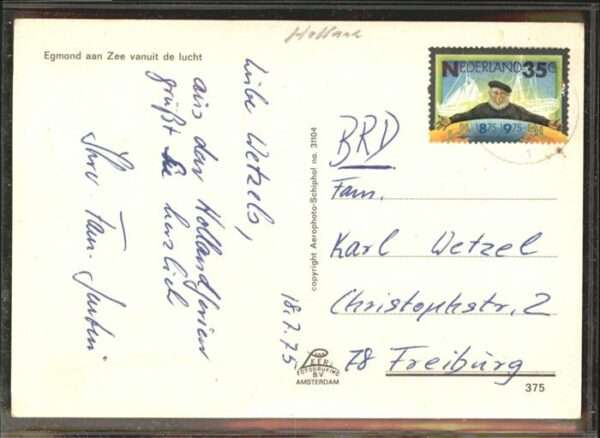 Holland
Egmond aan Zee vanuit de lucht
Liebe Wetzels,
aus den Hollandferien
grüßt Sie herzlich
Ihre Fam.
18.7.75
copyright Aerophoto-Schiphol no. 31104
NEDERLAND 35c
1875 1975
BRD
Fam.
Karl Wetzel
Christophstr. 2
78 Freiburg
FOTODRUKING
B.V.
AMSTERDAM
375